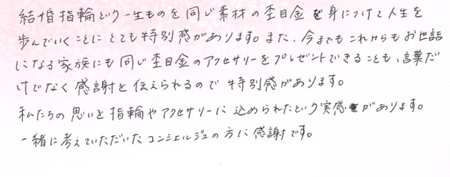 結婚指輪という一生ものを同じ素材の杢目金を身につけて人生を
歩んでいくことにとても特別感があります。また、今までもこれからもお世話
になる家族にも同じ杢目金のアクセサリーをプレゼントできることも、言葉だ
けでなく感謝を伝えられるので特別感があります。
私たちの思いを指輪やアクセサリーに込められたという実感があります。
一緒に考えていただいたコンシェルジュの方に感謝です。